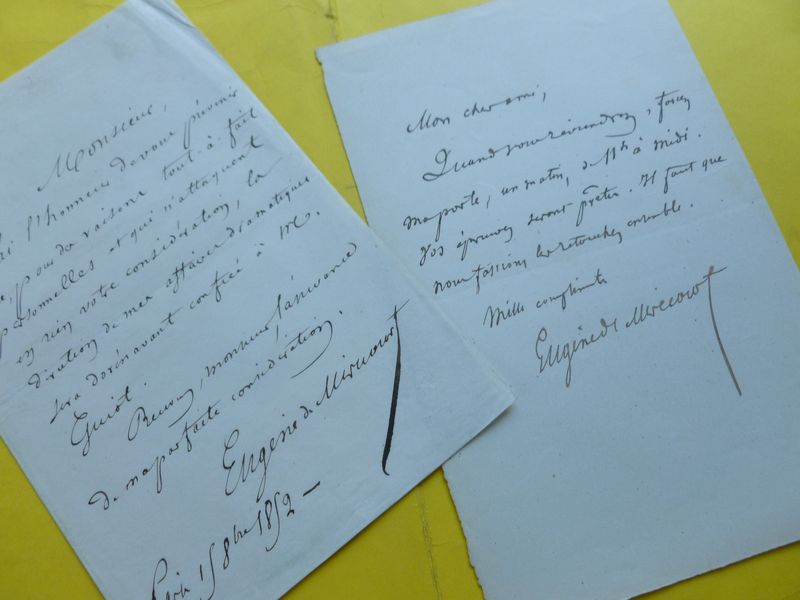 Monsieur,
l'honneur de vous prévenir
pour des raisons tout-à-fait
personnelles et qui n'attaquent
en rien votre considération, la
direction de mes affaires dramatiques
sera dorénavant confiée à Mr.
Guiot.
Recevez, monsieur, l'assurance
de ma parfaite considération.
Eugène de Mirecourt
Paris 15 8bre 1852 —
Mon cher ami,
Quand vous reviendrez, forcez
ma porte, un matin, de 11h à midi.
Vos épreuves seront prêtes. Il faut que
nous fassions les retouches ensemble.
Mille compliments
Eugène de Mirecourt